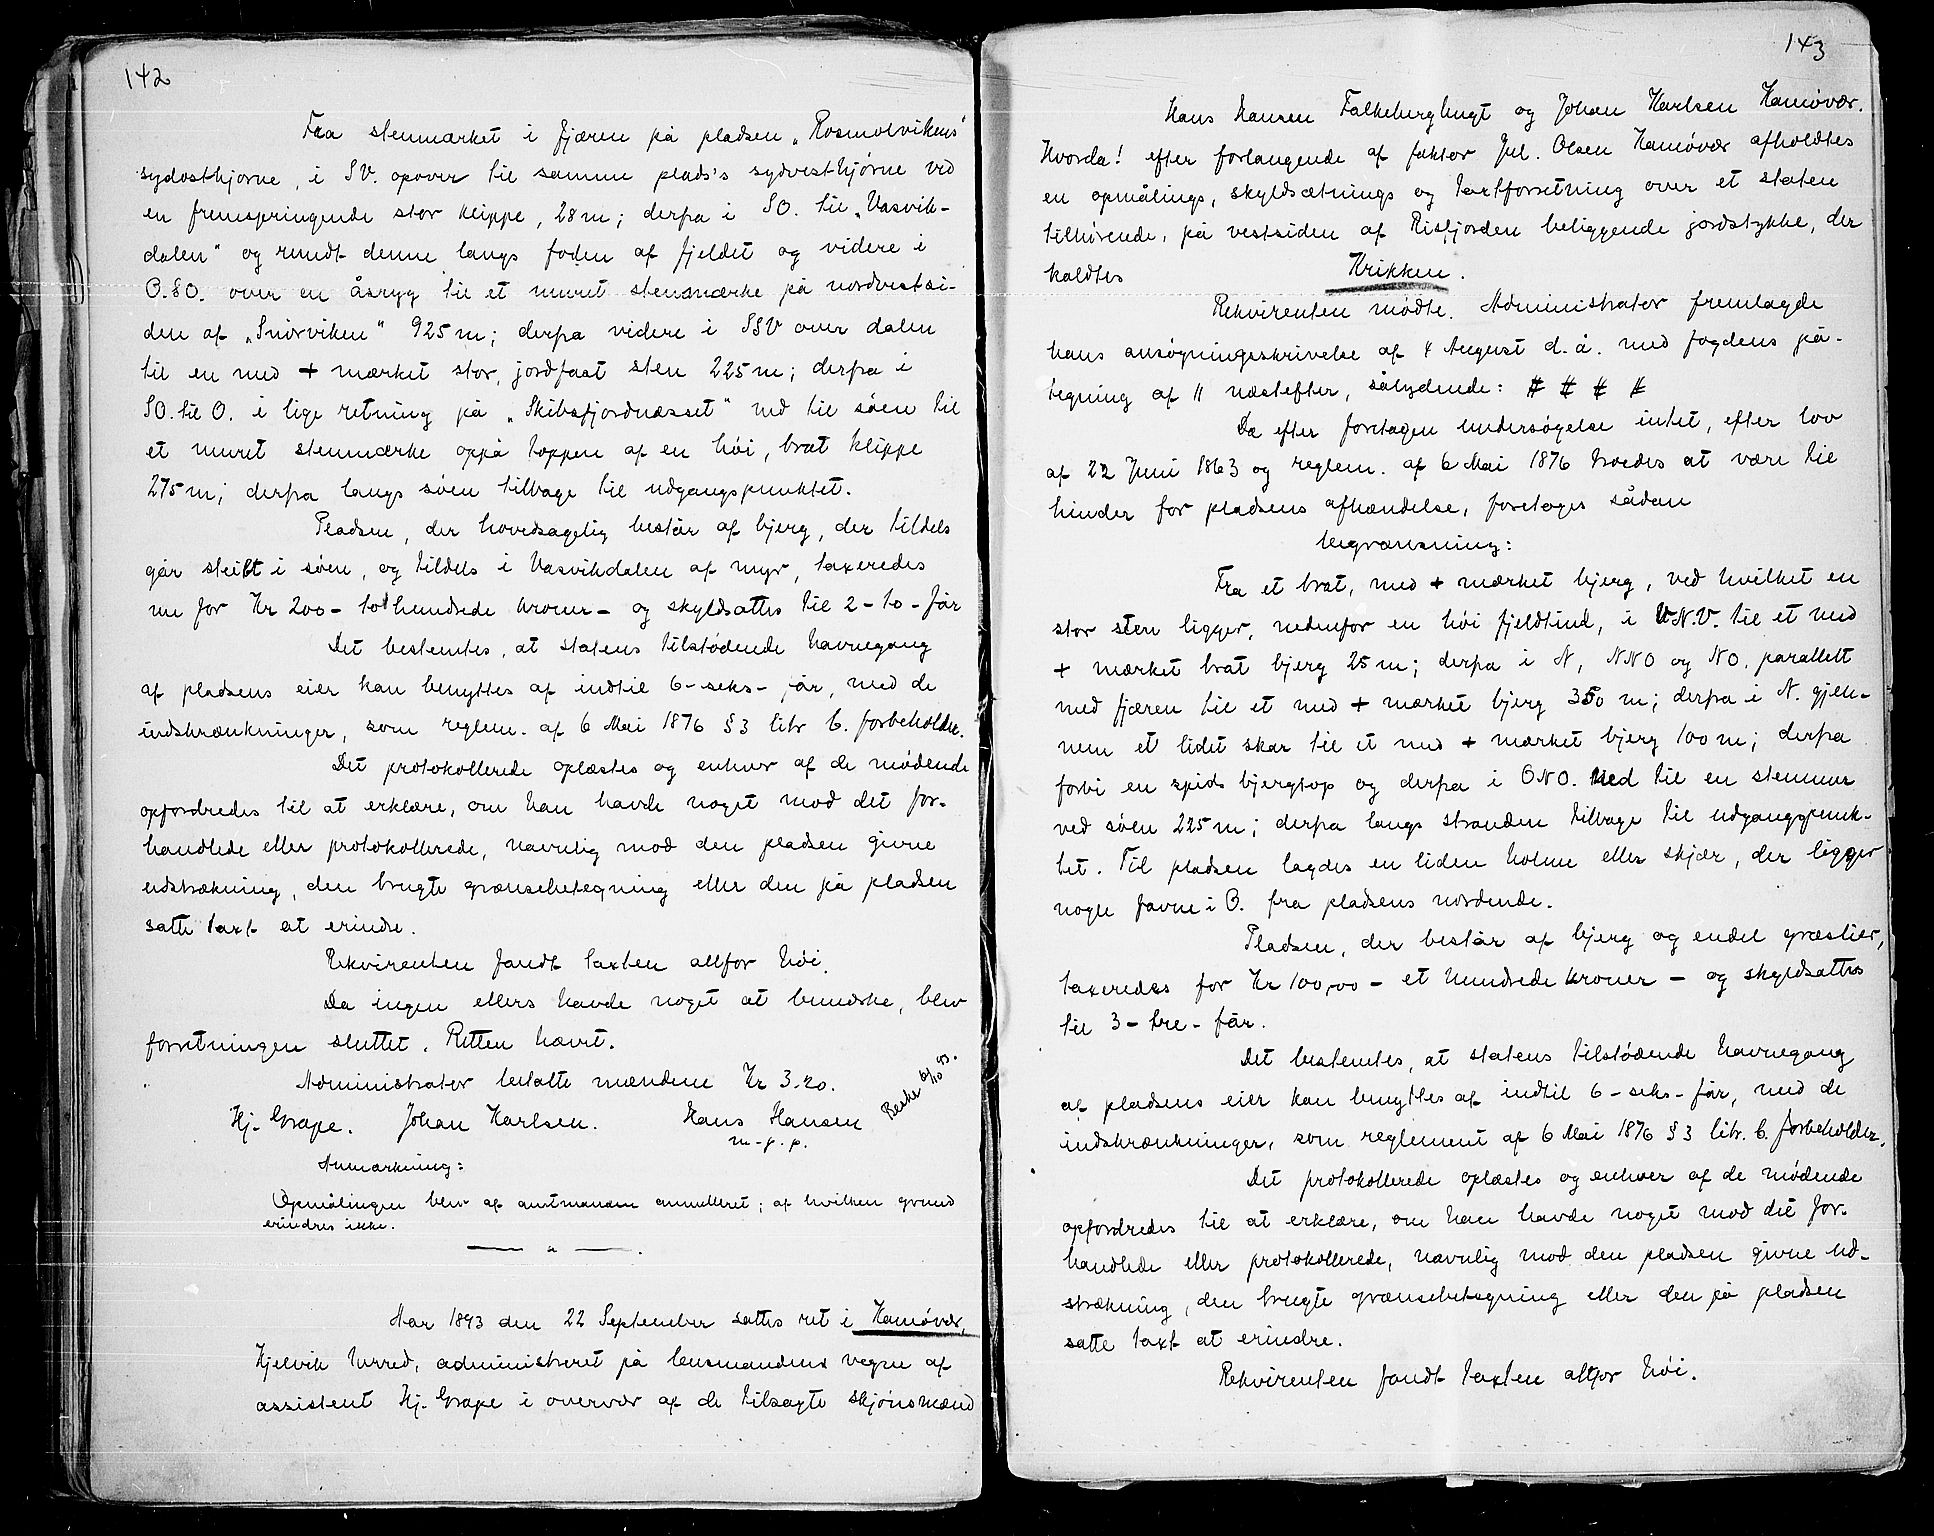 142
Fra stenmærket i fjæren på pladsen „Rosmolvikens"
sydosthjørne, i SV. opover til samme plads's sydvesthjørne ved
en fremspringende stor klippe, 28 m; derpa i SO. til „Vasvik-
dalen" og rundt denne langs foden af fjeldet og videre i
O.SO. over en åsryg til et muret stenmærke på nordvestsi-
den af „Snørviken" 925 m; derpa videre i SSV over dalen
til en med + mærket stor, jordfast sten 225 m; derpa i
SO. til O. i lige retning på „Skibsfjordnæsset" ned til søen til
et muret stenmærke oppå toppen af en høi, brat klippe
275 m; derpa langs søen tilbage til udgangspunktet.
Pladsen, der hovedsagelig består af bjerg, der tildels
går steilt i søen, og tildels i Vasvikdalen af myr, taxeredes
nu for Kr 200 - to hundrede kroner - og skyldsattes til 2 - to - får
Det bestemtes, at statens tilstødende havnegang
af pladsens eier kan benyttes af indtil 6 - seks - får, med de
indskrænkninger, som reglem. af 6 Mai 1876 § 3 litr b. forbeholder.
Det protokollerede oplæstes og enhver af de mødende
opfordredes til at erklære, om han havde noget mod det for-
handlede eller protokollerede, navnlig mod den pladsen givne
udstrækning, den brugte grænsebetegning eller den på pladsen
satte taxt at erindre.
Rekvirenten fandt taxten altfor høi.
Da ingen ellers havde noget at bemærke, blev
forretningen sluttet. Retten hævet.
Administrator betalte mændene Kr 3.20.
Hj. Grape. Johan Karlsen. Hans Hansen
m. f. p.
Anmærkning:
Opmålingen blev af amtmanden annulleret; af hvilken grund
erindres ikke.
Aar 1893 den 22 September sattes ret i Hamøvær,
Kjelvik herred, administreret på lensmandens vegne af
assistent Hj. Grape i overvær af de tilsagte skjønsmænd
143
Hans Hansen Falkeberghugt og Johan Karlsen Hamøvær.
Hvorda! efter forlangende af faktor Jul. Olsen Hamøvær afholdtes
en opmålings, skyldsætnings og taxtforretning over et staten
tilhørende, på vestsiden af Risfjorden beliggende jordstykke, der
kaldtes Krikken.
Rekvirenten mødte. Administrator fremlagde
hans ansøgningsskrivelse af 4 August d. å. med fogdens på-
tegning af 11 næstefter, sålydende: # # # #
Da efter foretagen undersøgelse intet, efter lov
af 22 Juni 1863 og reglem. af 6 Mai 1876 troedes at være til
hinder for pladsens afhændelse, foretoges sådan
begrænsning:
Fra et brat, med + mærket bjerg, ved hvilket en
stor sten ligger, nedenfor en høi fjeldtind, i V.N.V. til et med
+ mærket brat bjerg 25 m; derpa i N, NNO og NO. parallelt
med fjæren til et med + mærket bjerg 350 m; derpa i N. gjen-
nem et lidet skar til et med + mærket bjerg 100 m; derpa
forbi en spids bjergtop og derpa i ONO. ned til en stenmur
ved søen 225 m; derpa langs stranden tilbage til udgangspunk-
tet. Til pladsen lagdes en liden holme eller skjær, der ligger
nogle favne i O. fra pladsens nordende.
Pladsen, der består af bjerg og endel græslier,
taxeredes for Kr 100,00 - et hundrede kroner - og skyldsattes
til 3 - tre - får.
Det bestemtes, at statens tilstødende havnegang
af pladsens eier kan benyttes af indtil 6 - seks - får, med de
indskrænkninger, som reglement af 6 Mai 1876 § 3 litr. b. forbeholder.
Det protokollerede oplæstes og enhver af de mødende
opfordredes til at erklære, om han havde noget mod det for-
handlede eller protokollerede, navnlig mod den pladsen givne ud-
strækning, den brugte grænsebetegning eller den på pladsen
satte taxt at erindre.
Rekvirenten fandt taxten altfor høi.